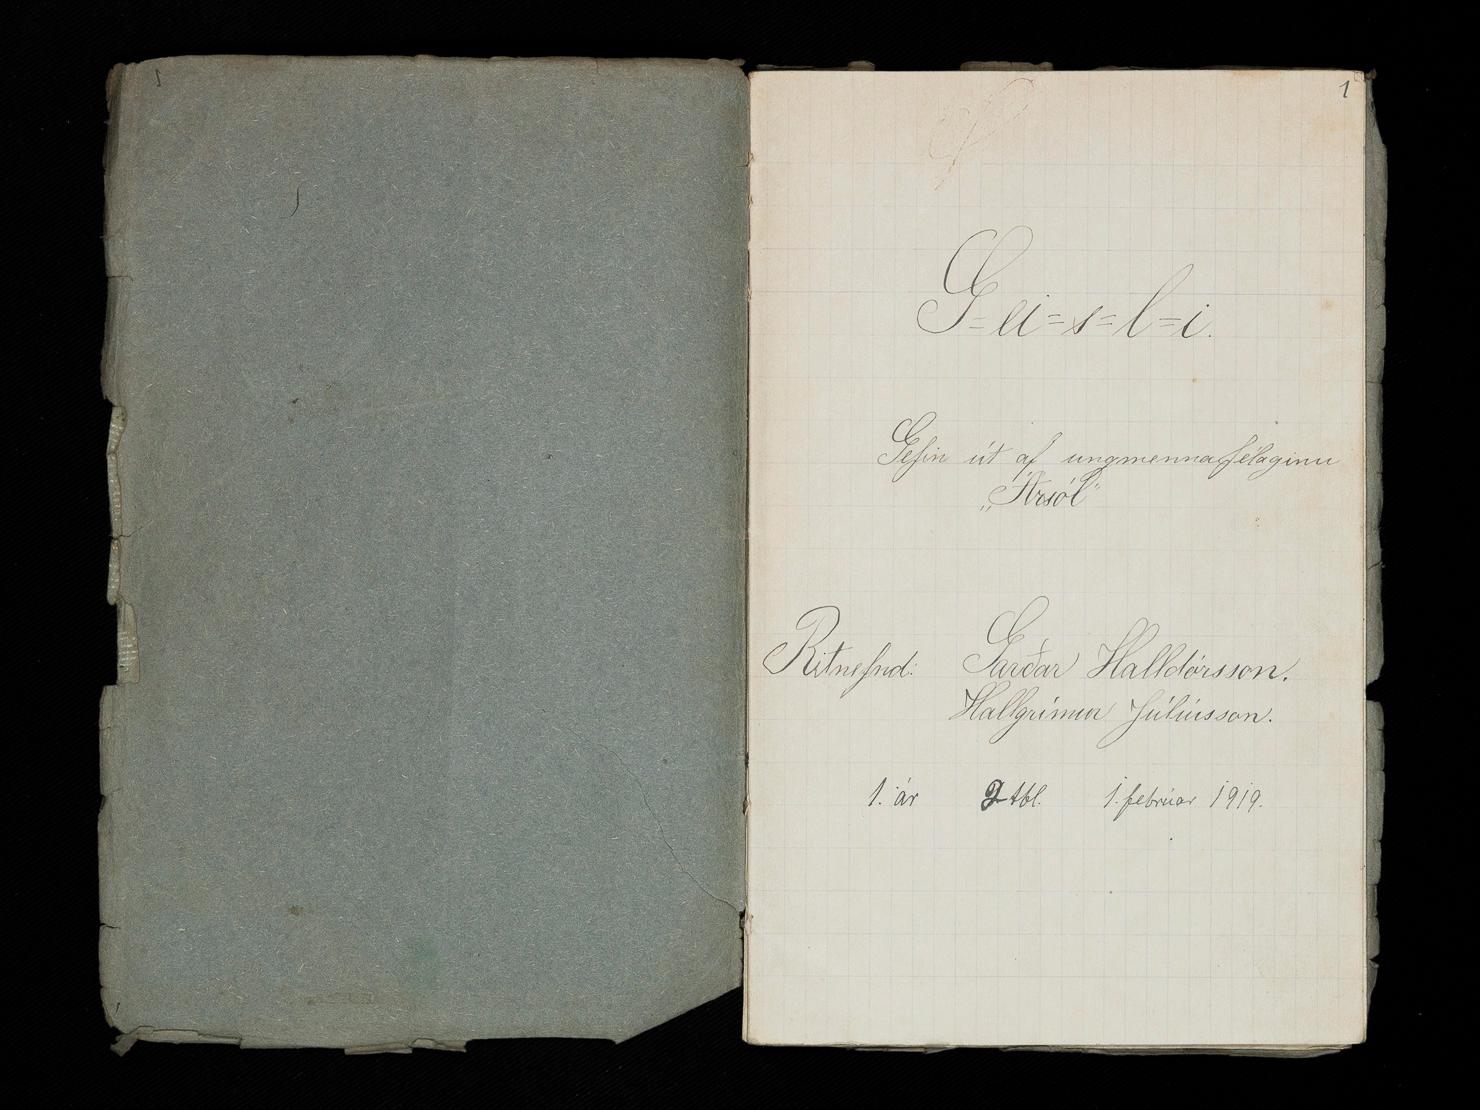 1
G=ei=s=l=i.
Gefin út af ungmennafélaginu
„Ársól"
Ritnefnd: Garðar Halldórsson.
Hallgrímur Júlíusson.
1. ár 2 tbl. 1. febrúar 1919.